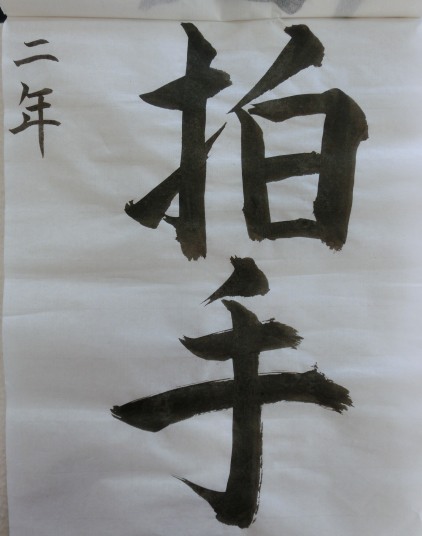 拍手
二年